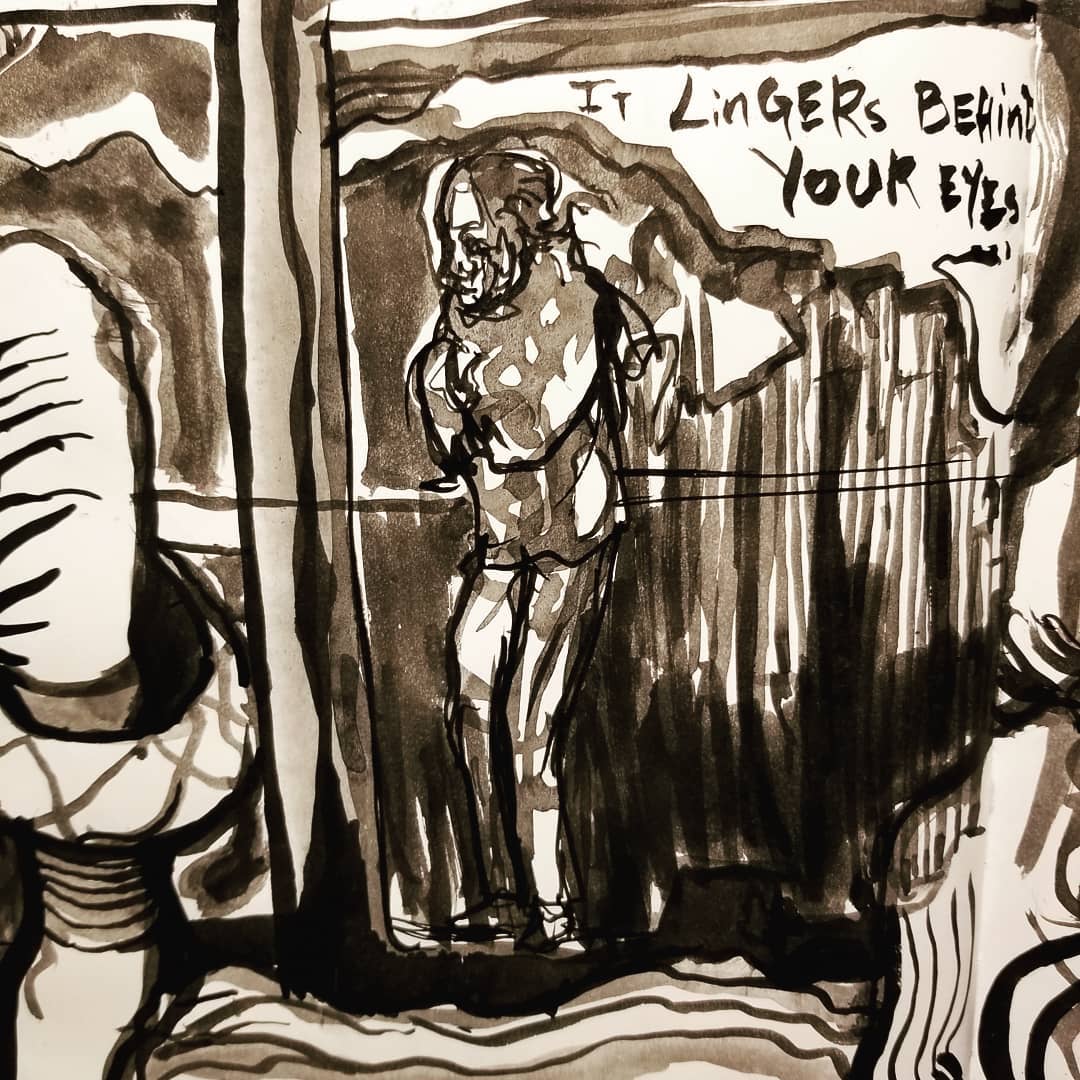 IT LinGERs BEHinD
YOUR EYEs